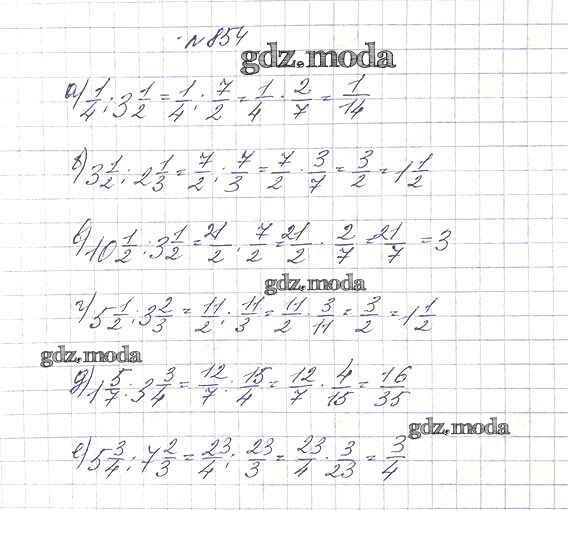 №854
gdz.moda
а) 1/4 : 3 1/2 = 1/4 : 7/2 = 1/4 · 2/7 = 1/14
б) 3 1/2 : 2 1/3 = 7/2 : 7/3 = 7/2 · 3/7 = 3/2 = 1 1/2
в) 10 1/2 : 3 1/2 = 21/2 : 7/2 = 21/2 · 2/7 = 21/7 = 3
gdz.moda
г) 5 1/2 : 3 2/3 = 11/2 : 11/3 = 11/2 · 3/11 = 3/2 = 1 1/2
gdz.moda
д) 1 5/7 : 3 3/4 = 12/7 : 15/4 = 12/7 · 4/15 = 16/35
gdz.moda
е) 5 3/4 : 7 2/3 = 23/4 : 23/3 = 23/4 · 3/23 = 3/4